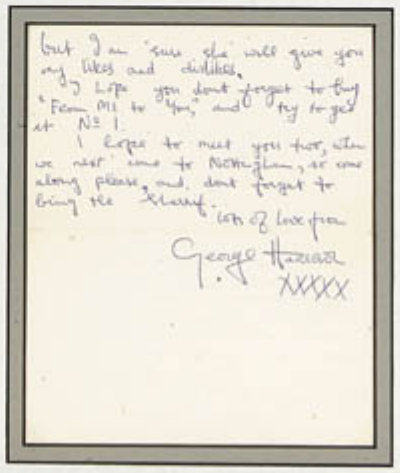 but I am sure she will give you
my likes and dislikes.
I hope you dont forget to buy
"From Me to You," and try to get
it No 1.
I hope to meet you two, when
we next come to Nottingham, so come
along please, and dont forget to
bring the Sherrif.
lots of love from
George Harrison
XXXXX